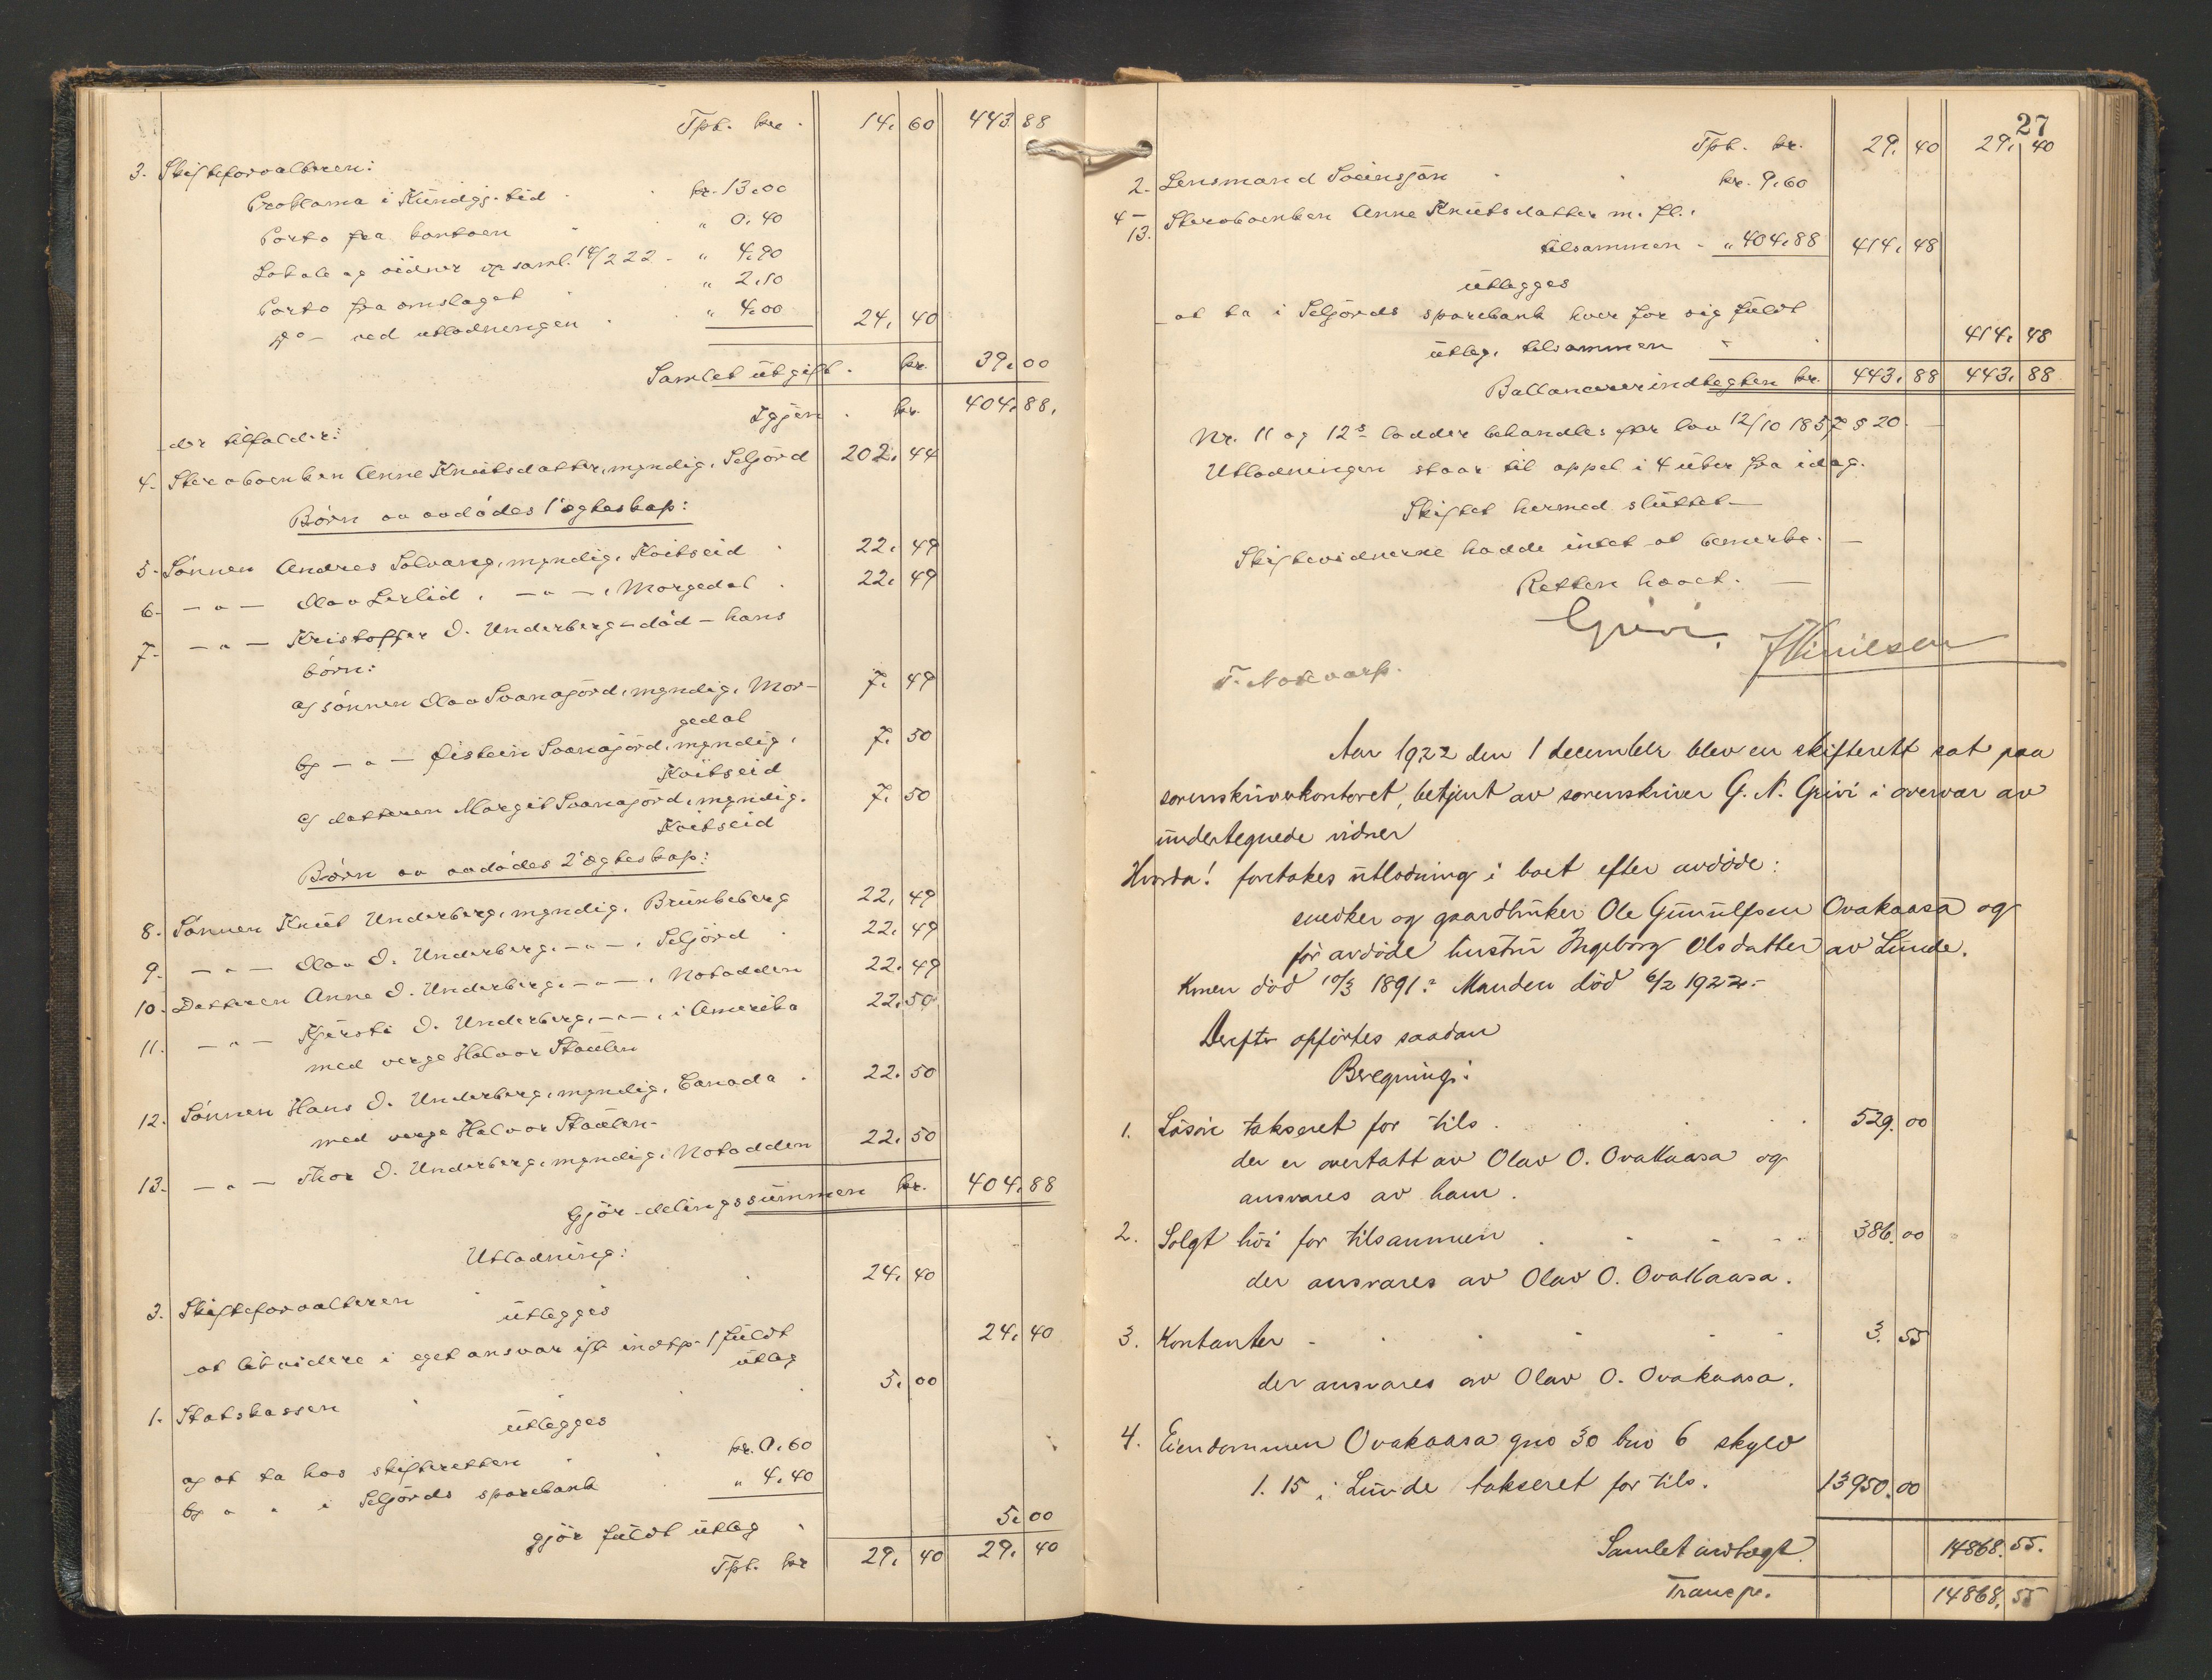 Tpt. kr. 14. 60 443 88
3. Skifteforvalteren:
Proklama i Kundgj. tid kr. 13.00
Porto fra kontoen " 0.40
Lokale og vidner op saml. 14/2 22 - " 4.90
Porto fra omslaget " 2.10
do - ved utlodningen " 4.00 24. 40
Samlet utgift kr. 39.00
Igjen kr. 404.88.
der tilfalder:
4. Sterboenken Anne Knutsdatter, myndig, Seljord 202. 44
Børn av avdødes 1' egteskap:
5. Sønnen Andres Solvang, myndig, Kvitseid 22. 49
6. - " - Olav Lerlid, - " -, Morgedal 22. 49
7. - " - Kristoffer O. Underberg - død - hans
børn:
a) sønnen Olav Svanajord, myndig, Mor-
gedal 7. 49
b) - " - Øistein Svanajord, myndig,
Kvitseid 7. 50
c) datteren Margit Svanajord, myndig.
Kvitseid 7. 50
Børn av avdødes 2' egteskap:
8. Sønnen Knut Underberg, myndig, Brunkeberg 22. 49
9. - " - Olav O. Underberg, - " -, Seljord 22. 49
10. Datteren Anne O. Underberg, - " -, Notodden 22. 49
11. - " - Kjersti O. Underberg, - " -, i Amerika 22. 50
med verge Halvor Staulen
12. Sønnen Hans O. Underberg, myndig, Canada 22. 50
med verge Halvor Staulen -
13. - " - Thor O. Underberg, myndig, Notodden 22. 50
Gjør delingssummen kr. 404.88
Utlodning:
3. Skifteforvalteren 24. 40
utlegges
at litvidere i eget ansvar ift indtp. 1 fuldt 24. 40
utleg
1. Statskassen 5. 00
utlegges
a) at ta hos skifteretten kr. 0.60
b) " " i Seljords sparebank " 4.40
gjør fuldt utleg 5.00
Tpt. kr 29. 40 29. 40
27
Tpt. kr. 29. 40 29. 40
2. Lensmand Sveinsjøn kr. 9.60
4 -
13. Sterboenken Anne Knutsdatter m. fl.
tilsammen - " 404.88 414. 48
utlegges
at ta i Seljords sparebank hver for sig fuldt
utleg, tilsammen 414. 48
Ballancerer indtegten kr. 443. 88 443. 88
Nr. 11 og 12s lodder behandles efter lov 12/10 1857 § 20.
Utlodningen staar til appel i 4 uker fra idag.
Skiftet hermed sluttet -
Skiftevidnerne hadde intet at bemerke. -
Retten hævet. -
Grivi.
T. Notevarp.
Aar 1922 den 1 december blev en skifterett sat paa
sorenskriverkontoret, betjent av sorenskriver G. N. Grivi i overvær av
undertegnede vidner
Hvorda! foretakes utlodning i boet efter avdøde:
snedker og gaardbruker Ole Gunulfsen Ovakaasa og
før avdøde hustru Ingeborg Olsdatter av Lunde.
Konen død 10/3 1891. Manden død 6/2 1922. -
Derefter opførtes saadan
Beregning:
1. Løsøre takseret for tils. 529. 00
der er overtatt av Olav O. Ovakaasa og
ansvares av ham.
2. Solgt høi for tilsammen 386. 00
der ansvares av Olav O. Ovakaasa.
3. Kontanter 3. 55
der ansvares av Olav O. Ovakaasa.
4. Eiendommen Ovakaasa gno 30 bno 6 skyld
1. 15 i Lunde takseret for tils. 13950. 00
Samlet indtægt. 14868. 55.
Transp. 14868. 55